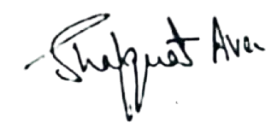 Shafquat Ava